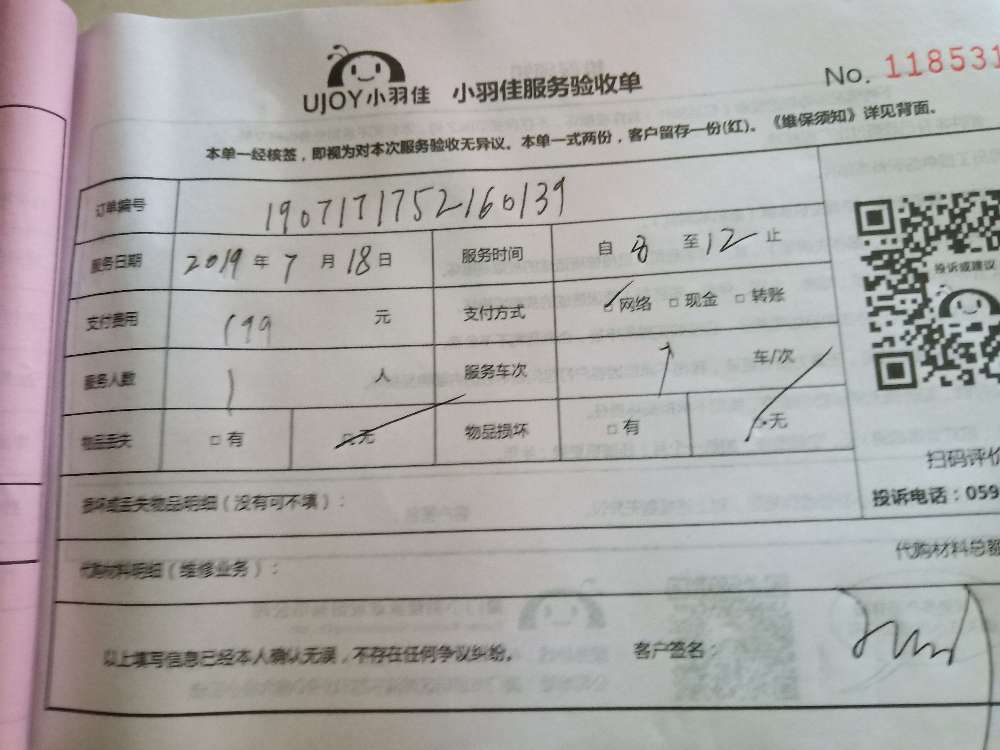 UJOY小羽佳 小羽佳服务验收单 No. 118531
本单一经核签，即视为对本次服务验收无异议。本单一式两份，客户留存一份(红)。《维保须知》详见背面。
订单编号 1907171752160139
服务日期 2019 年 7 月 18 日 服务时间 自 8 至 12 止
支付费用 199 元 支付方式 ☑网络 □现金 □转账
投诉或建议
服务人数 1 人 服务车次 1 车/次
物品丢失 □有 ☑无 物品损坏 □有 ☑无
扫码评价
损坏或丢失物品明细（没有可不填）：
投诉电话：059
代购材料明细（维修业务）： 代购材料总额
以上填写信息已经本人确认无误，不存在任何争议纠纷。 客户签名：